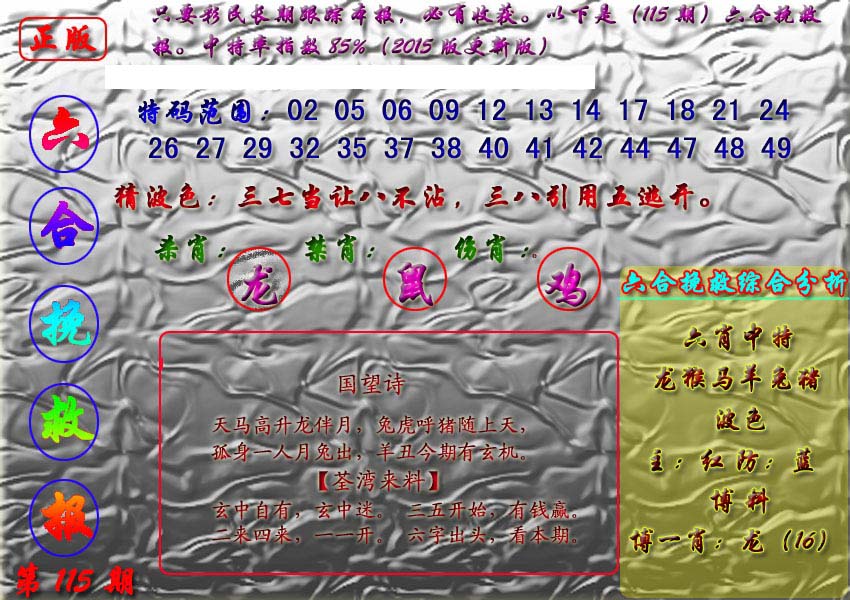 正版
只要彩民长期跟踪本报，必有收获。以下是（115期）六合挽救
报。中特率指数85%（2015版更新版）
六
合
挽
救
报
第115期
特码范围：02 05 06 09 12 13 14 17 18 21 24
26 27 29 32 35 37 38 40 41 42 44 47 48 49
猜波色：三七当让八不沾，三八引用五逃开。
杀肖： 禁肖： 伤肖：。
龙 鼠 鸡
国望诗
天马高升龙伴月，兔虎呼猪随上天，
孤身一人月兔出，羊丑今期有玄机。
【荃湾来料】
玄中自有，玄中迷。 三五开始，有钱赢。
二来四来，一一开。 六字出头，看本期。
六合挽救综合分析
六肖中特
龙猴马羊兔猪
波色
主：红 防：蓝
博料
博一肖：龙（16）